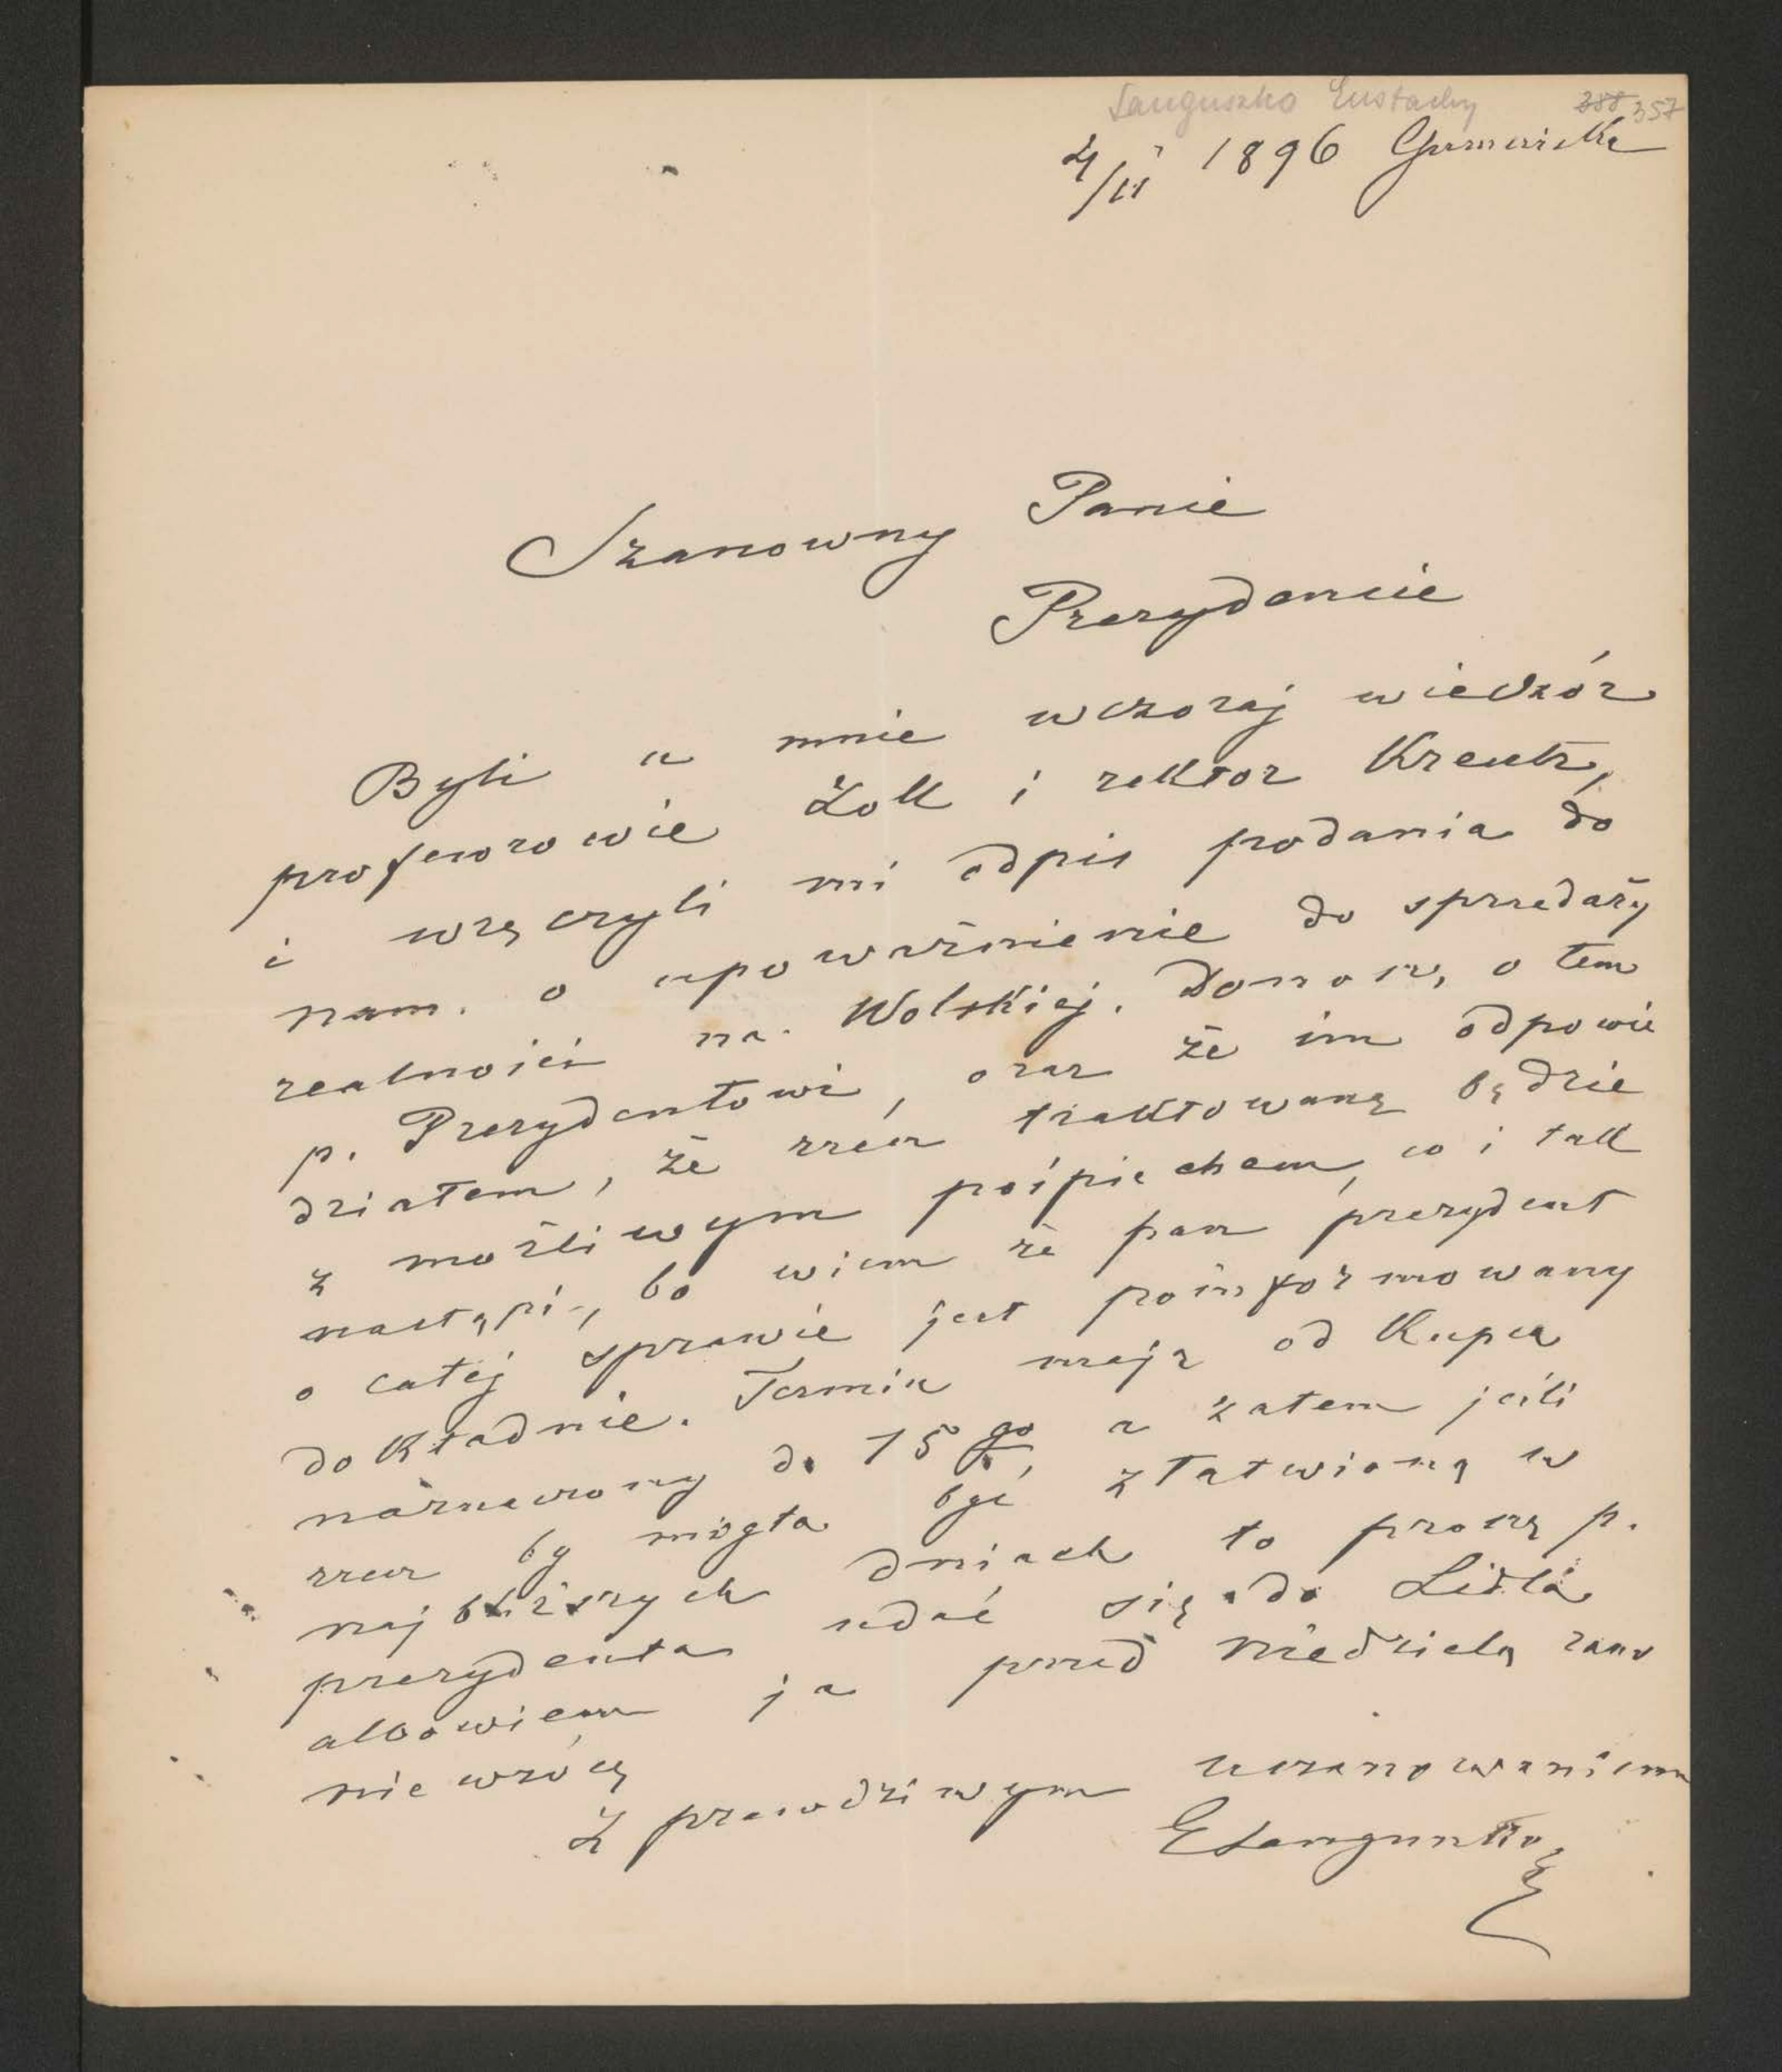 Sanguszko Eustachy 388 357
4/II 1896 Gumniska
Szanowny Panie
Prezydencie
Byli u mnie wczoraj wieczór
profesorowie Zoll i rektor Kreutz,
i wręczyli mi odpis podania do
nam. o upoważnienie do sprzedaży
realności na Wolskiej. Donoszę o tem
p. Prezydentowi, oraz że im odpowie
działem, że rzecz traktowaną będzie
z możliwym pośpiechem, co i tak
nastąpi, bo wiem że pan prezydent
o całej sprawie jest poinformowany
dokładnie. Termin mają od Kupca
naznaczony do 15go, a zatem jeśli
rzecz by mogła być złatwioną w
najbliższych dniach to proszę p.
prezydenta udać się do Lidla
albowiem ja przed niedzielą rano
nie wrócę
Z prawdziwym uszanowaniem
ESanguszko